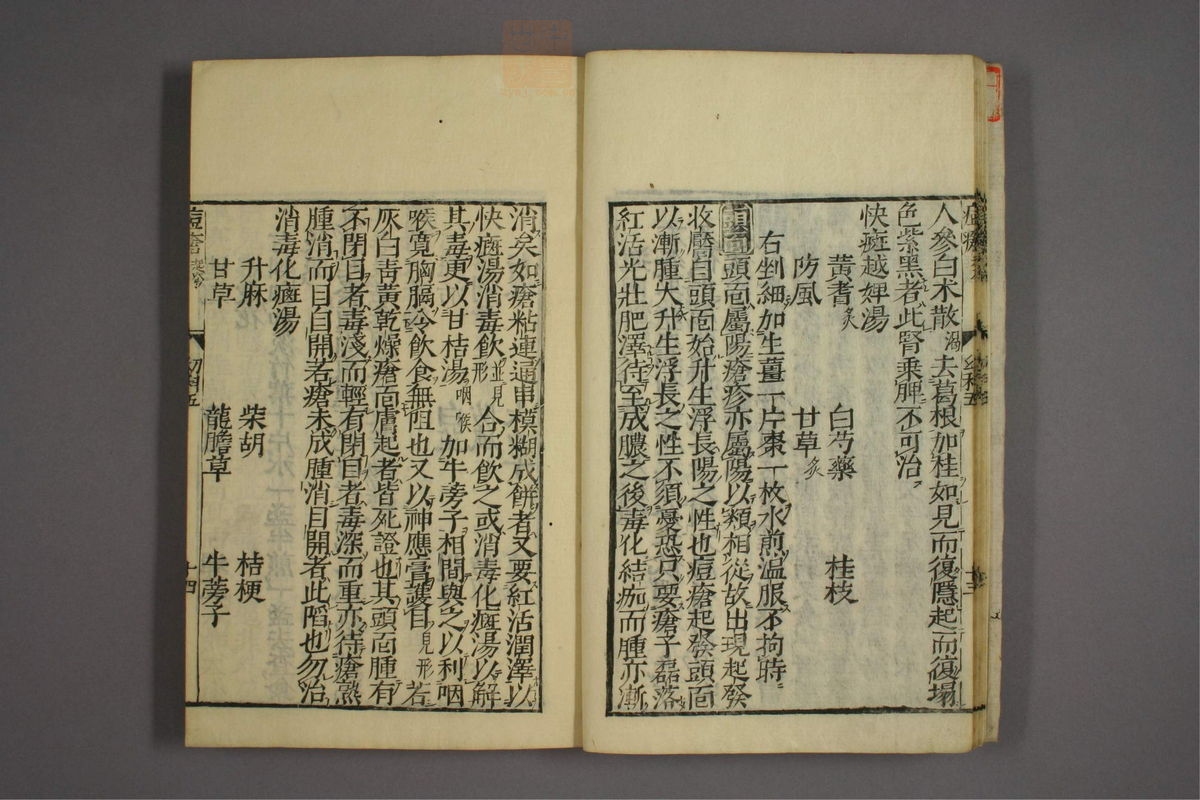 人參白朮散渴去葛根加桂如見而復隱起而復塌
色紫黑者此腎乘脾不可治
快斑越婢湯
黃耆炙 白芍藥 桂枝
防風 甘草炙
右剉細加生薑一片棗一枚水煎温服不拘時
頭面屬陽瘡疹亦屬陽以類相從故出現起發
收靨自頭面始升生浮長陽之性也痘瘡起發頭面
以漸腫大升生浮長之性不須憂恐只要瘡子磊落
紅活光壯肥澤待至成膿之後毒化結痂而腫亦漸
消矣如瘡粘連逼串模糊成餅者又要紅活潤澤以
快斑湯消毒飲並見形合而飲之或消毒化斑湯以解
其毒更以甘桔湯咽喉加牛蒡子相間與之以利咽
喉寬胸膈令飲食無阻也又以神應膏護目見形若
灰白青黃乾燥瘡面膚起者皆死證也其頭面腫有
不閉目者毒淺而輕有閉目者毒深而重亦待瘡熟
腫消而目自開若瘡未成腫消目開者此陷也勿治
消毒化斑湯
升麻 柴胡 桔梗
甘草 龍膽草 牛蒡子
痘瘡
十四